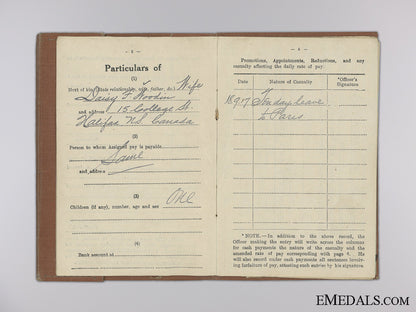 - 4 -
Particulars of
(1)
Next of kin (state relationship, wife, father, &c.) Wife
Daisy F.
and address 15 College St.
Halifax N.S. Canada
(2)
Person to whom Assigned pay is payable.
Same
and address
(3)
Children (if any), number, age and sex One
(4)
Bank account at
Promotions, Appointments, Reductions, and any
casualty affecting the daily rate of pay.
Date
Nature of Casualty
*Officer's
Signature
18.9.17 Ten days leave
to Paris
*NOTE.—In addition to the above record, the
Officer making the entry will write across the columns
for cash payments the nature of the casualty and the
amended rate of pay corresponding with page 6. He
will also record under cash payments all sentences involv-
ing forfeiture of pay, attesting such entries by his signature.
EMEDALS.COM